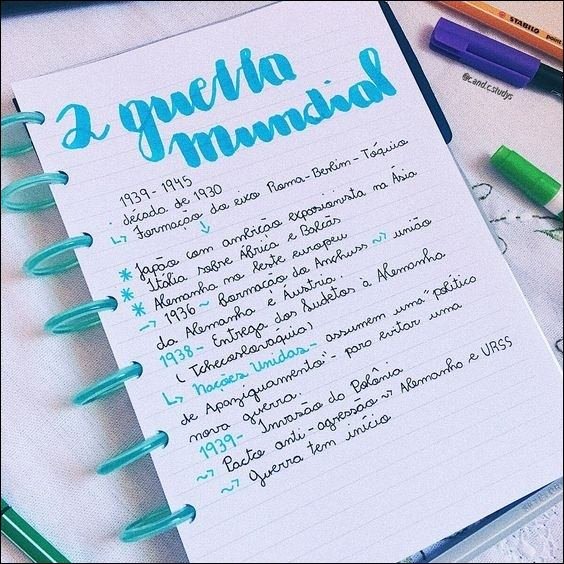 2 guerra
mundial
1939 - 1945
década de 1930
↳ Formação do eixo Roma - Berlim - Tóquio
↓
* Japão com ambição expansionista na Ásia
* Itália sobre África e Balcãs
* Alemanha no leste europeu
→ 1936 ~ Formação da Anchuss ~> união
da Alemanha e Áustria.
1938 - Entrega dos Sudetos à Alemanha
(Tchecoslováquia)
↳ Nações Unidas - assumem uma "político
de Apaziguamento" - para evitar uma
nova guerra.
1939 - Invasão da Polônia
~> Pacto anti-agressão ~> Alemanha e URSS
~> guerra tem início
STABILO point
@c.and.c.studys